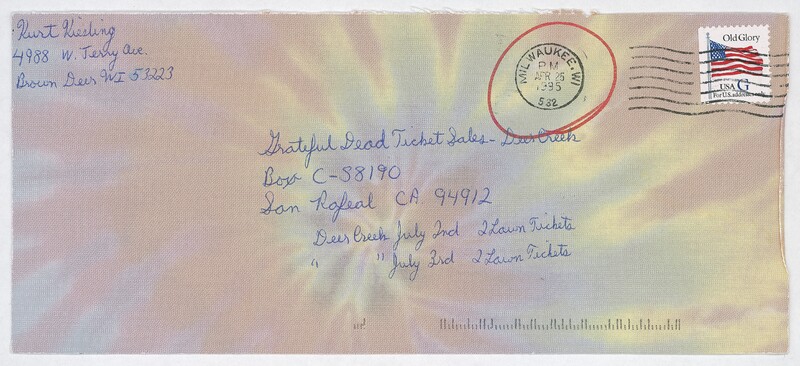 Kurt Kiesling
4988 W. Terry Ave.
Brown Deer WI 53223
MILWAUKEE, WI
PM
APR 26
1995
532
Old Glory
USA G
For U.S. addresses only
Grateful Dead Ticket Sales - Deer Creek
Box C-S8190
San Rafeal CA. 94912
Deer Creek July 2nd 2 Lawn Tickets
" " July 3rd 2 Lawn Tickets